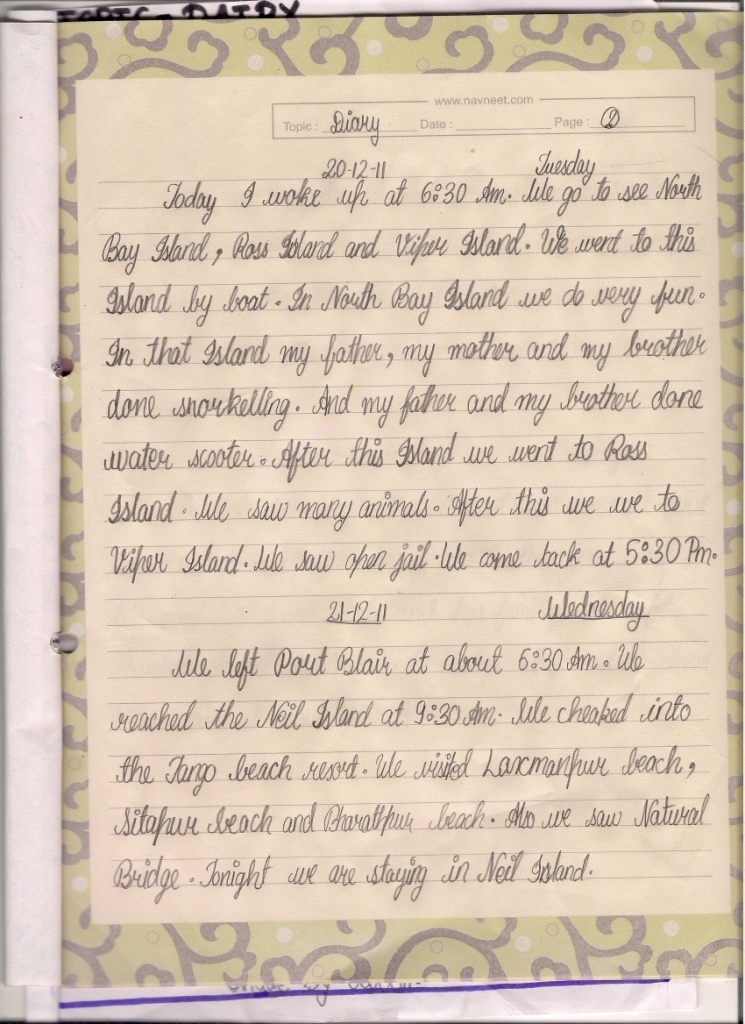 TOPIC - DAIRY
www.navneet.com
Topic : Diary Date : Page : 2
20-12-11 Tuesday
Today I woke up at 6:30 Am. We go to see North
Bay Island, Ross Island and Viper Island. We went to this
Island by boat. In North Bay Island we do very fun.
In that Island my father, my mother and my brother
done snorkelling. And my father and my brother done
water scooter. After this Island we went to Ross
Island. We saw many animals. After this we we to
Viper Island. We saw open jail. We come back at 5:30 Pm.
21-12-11 Wednesday
We left Port Blair at about 6:30 Am. We
reached the Neil Island at 9:30 Am. We cheaked into
the Tango beach resort. We visited Laxmanpur beach,
Sitapur beach and Bharatpur beach. Also we saw Natural
Bridge. Tonight we are staying in Neil Island.